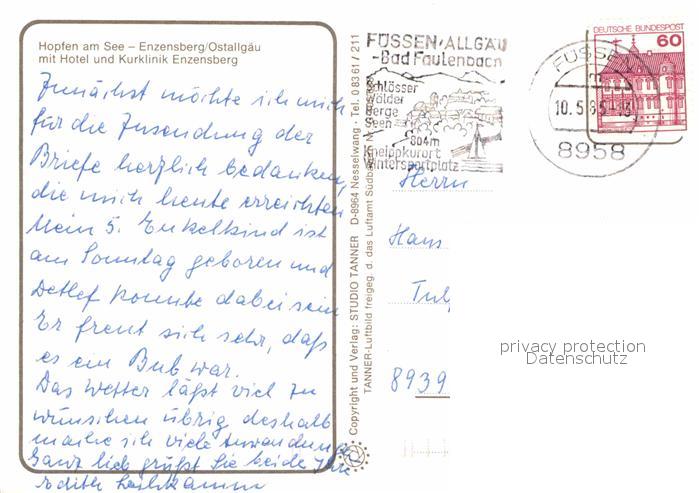 Hopfen am See – Enzensberg/Ostallgäu
mit Hotel und Kurklinik Enzensberg
Zunächst möchte ich mich
für die Zusendung der
Briefe herzlich bedanken,
die mich heute erreichten
Mein 5. Enkelkind ist
am Sonntag geboren und
Detlef konnte dabei sein
Er freut sich sehr, daß
es ein Bub war.
Das Wetter läßt viel zu
wünschen übrig deshalb
mache ich viele Anwendungen
Ganz lieb grüßt Sie beide Ihre
Edith
Copyright und Verlag: STUDIO TANNER D-8964 Nesselwang - Tel. 08361 / 211
TANNER-Luftbild freigeg. d. das Luftamt Südb
FÜSSEN-ALLGÄU
-Bad Faulenbach
Schlösser
Wälder
Berge
Seen
804m
Kneippkurort
Wintersportplatz
DEUTSCHE BUNDESPOST
60
FÜSSEN
10.5.85-13
8958
Herrn
Hans
8939
privacy protection
Datenschutz